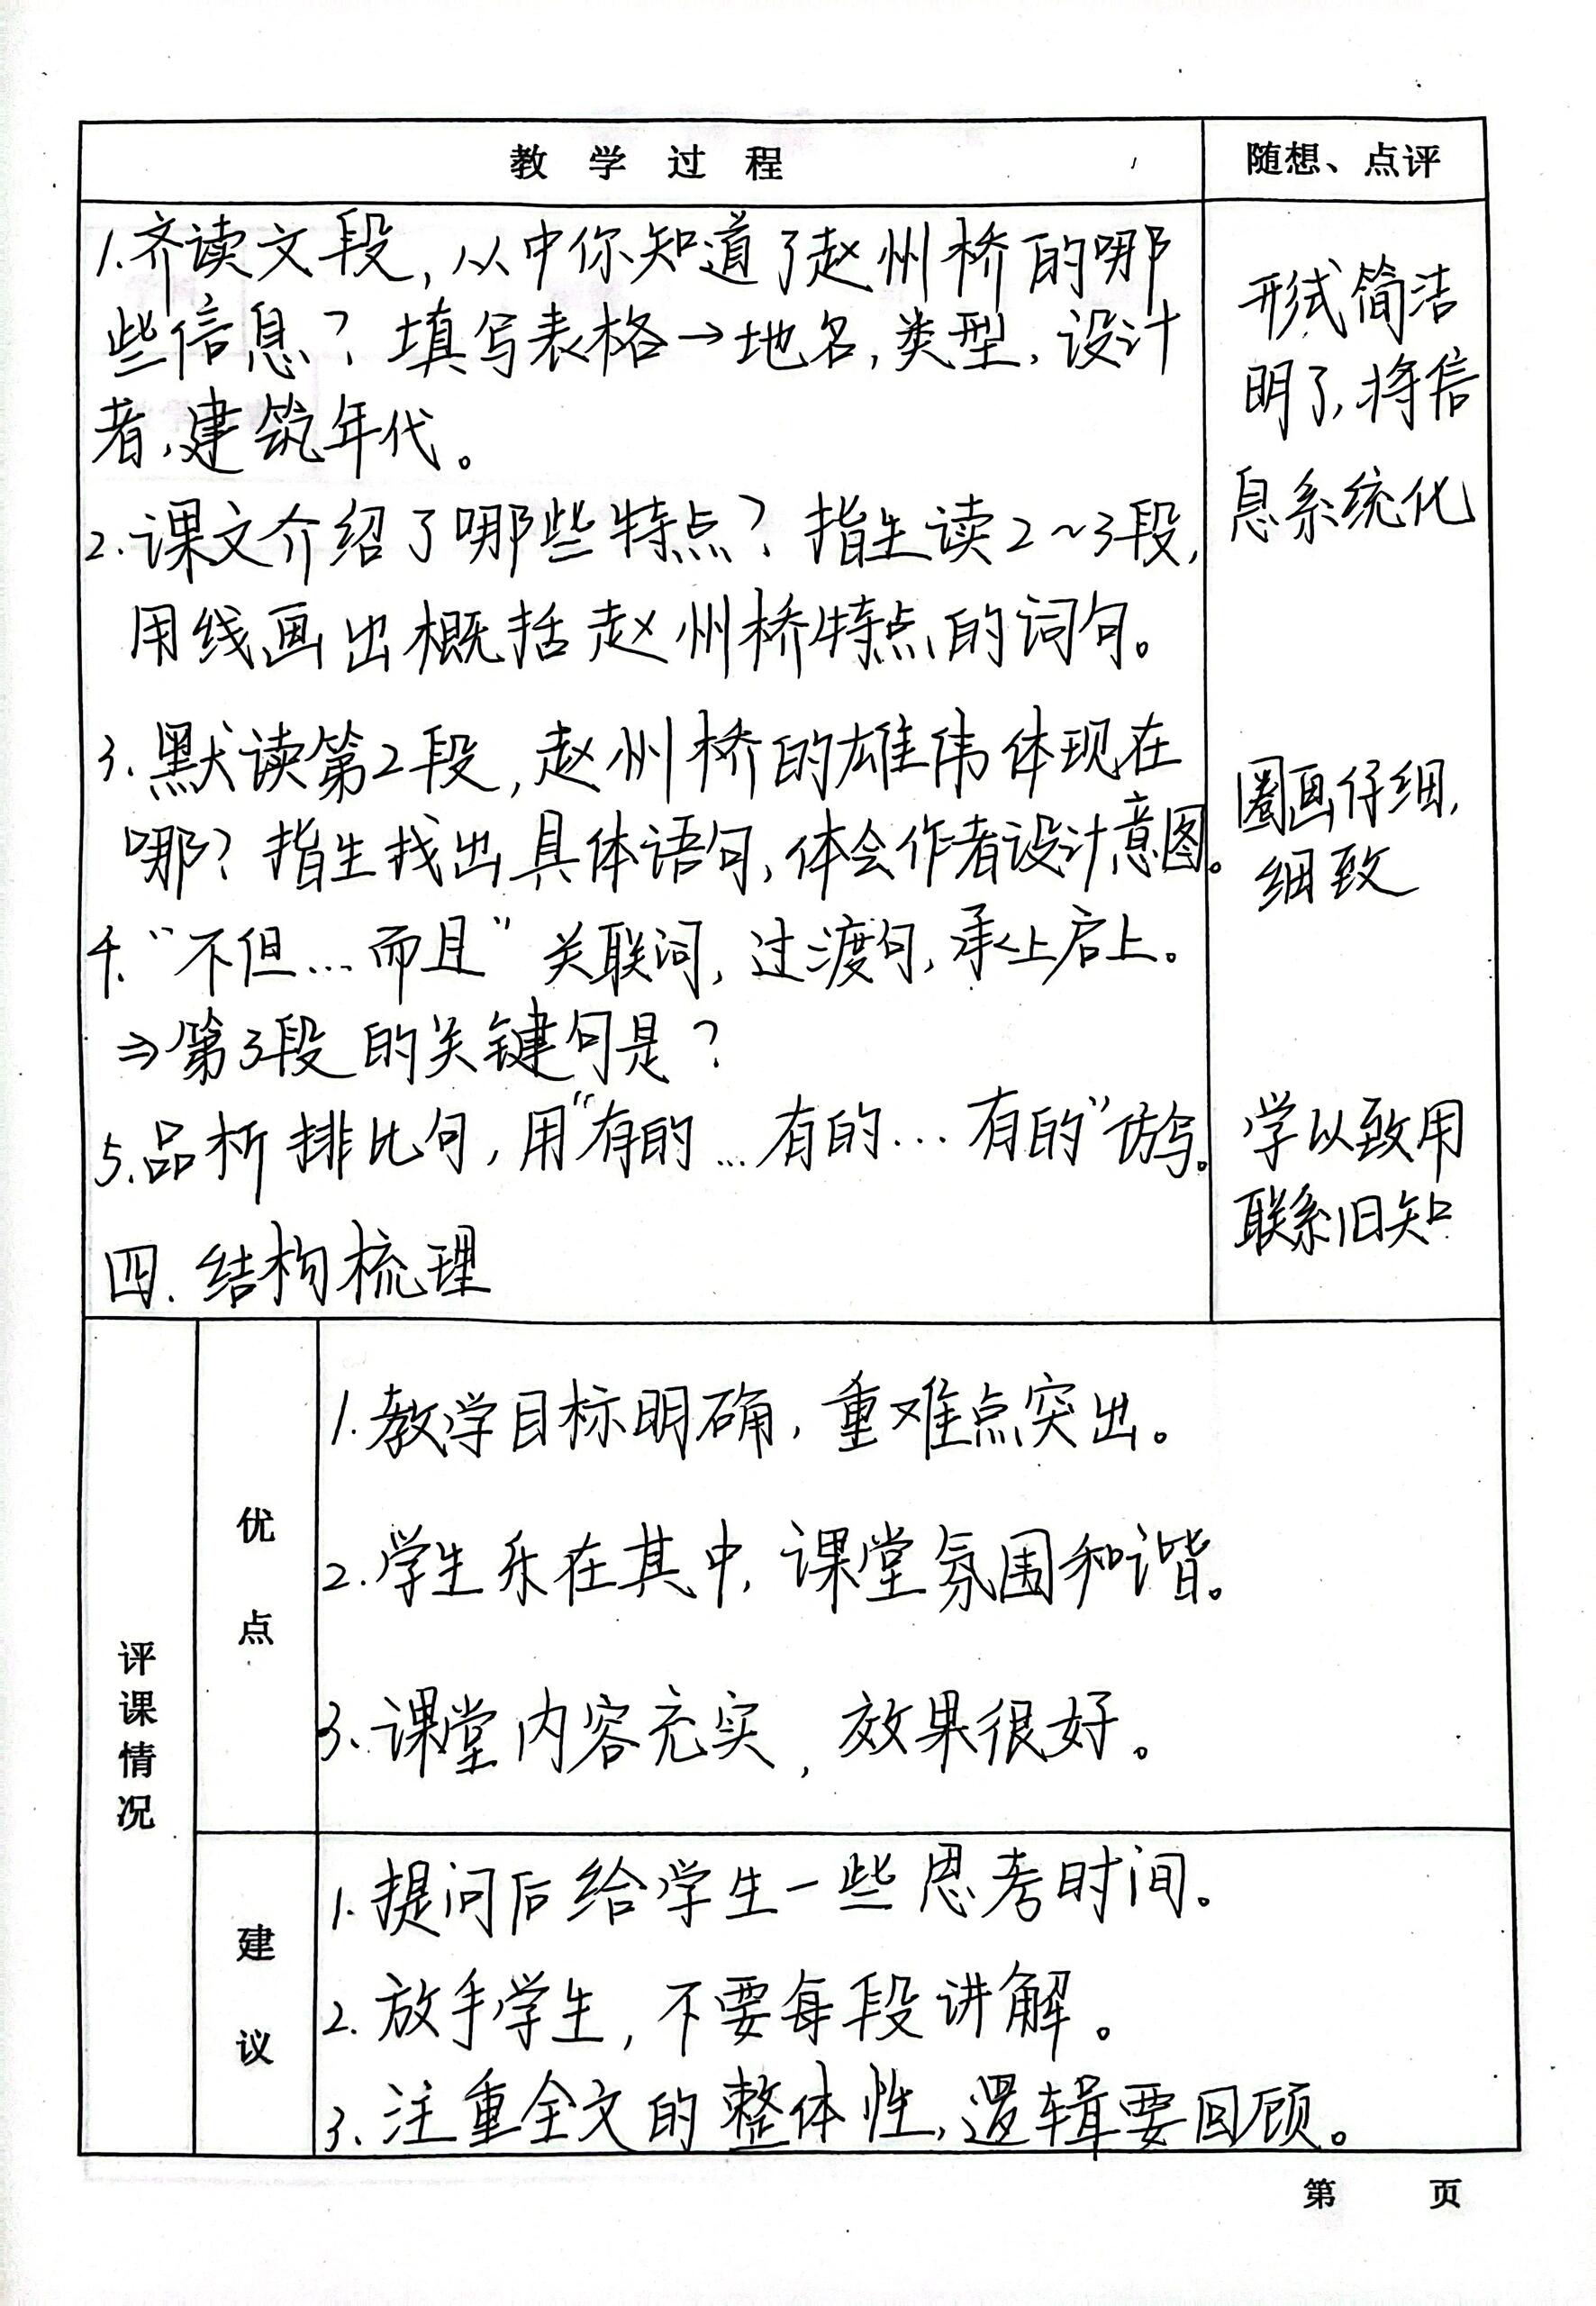 教学过程
随想、点评
1.齐读文段，从中你知道了赵州桥的哪
些信息？填写表格→地名，类型，设计
者，建筑年代。
2.课文介绍了哪些特点？指生读2~3段，
用线画出概括赵州桥特点的词句。
3.默读第2段，赵州桥的雄伟体现在
哪？指生找出具体语句，体会作者设计意图。
4.“不但…而且”关联词，过渡句，承上启上。
⇒第3段的关键句是？
5.品析排比句，用“有的…有的…有的”仿写。
四.结构梳理
形式简洁
明了，将信
息系统化
圈画仔细，
细致
学以致用
联系旧知
评课情况
优点
1.教学目标明确，重难点突出。
2.学生乐在其中，课堂氛围和谐。
3.课堂内容充实，效果很好。
建议
1.提问后给学生一些思考时间。
2.放手学生，不要每段讲解。
3.注重全文的整体性，逻辑要回顾。
第 页